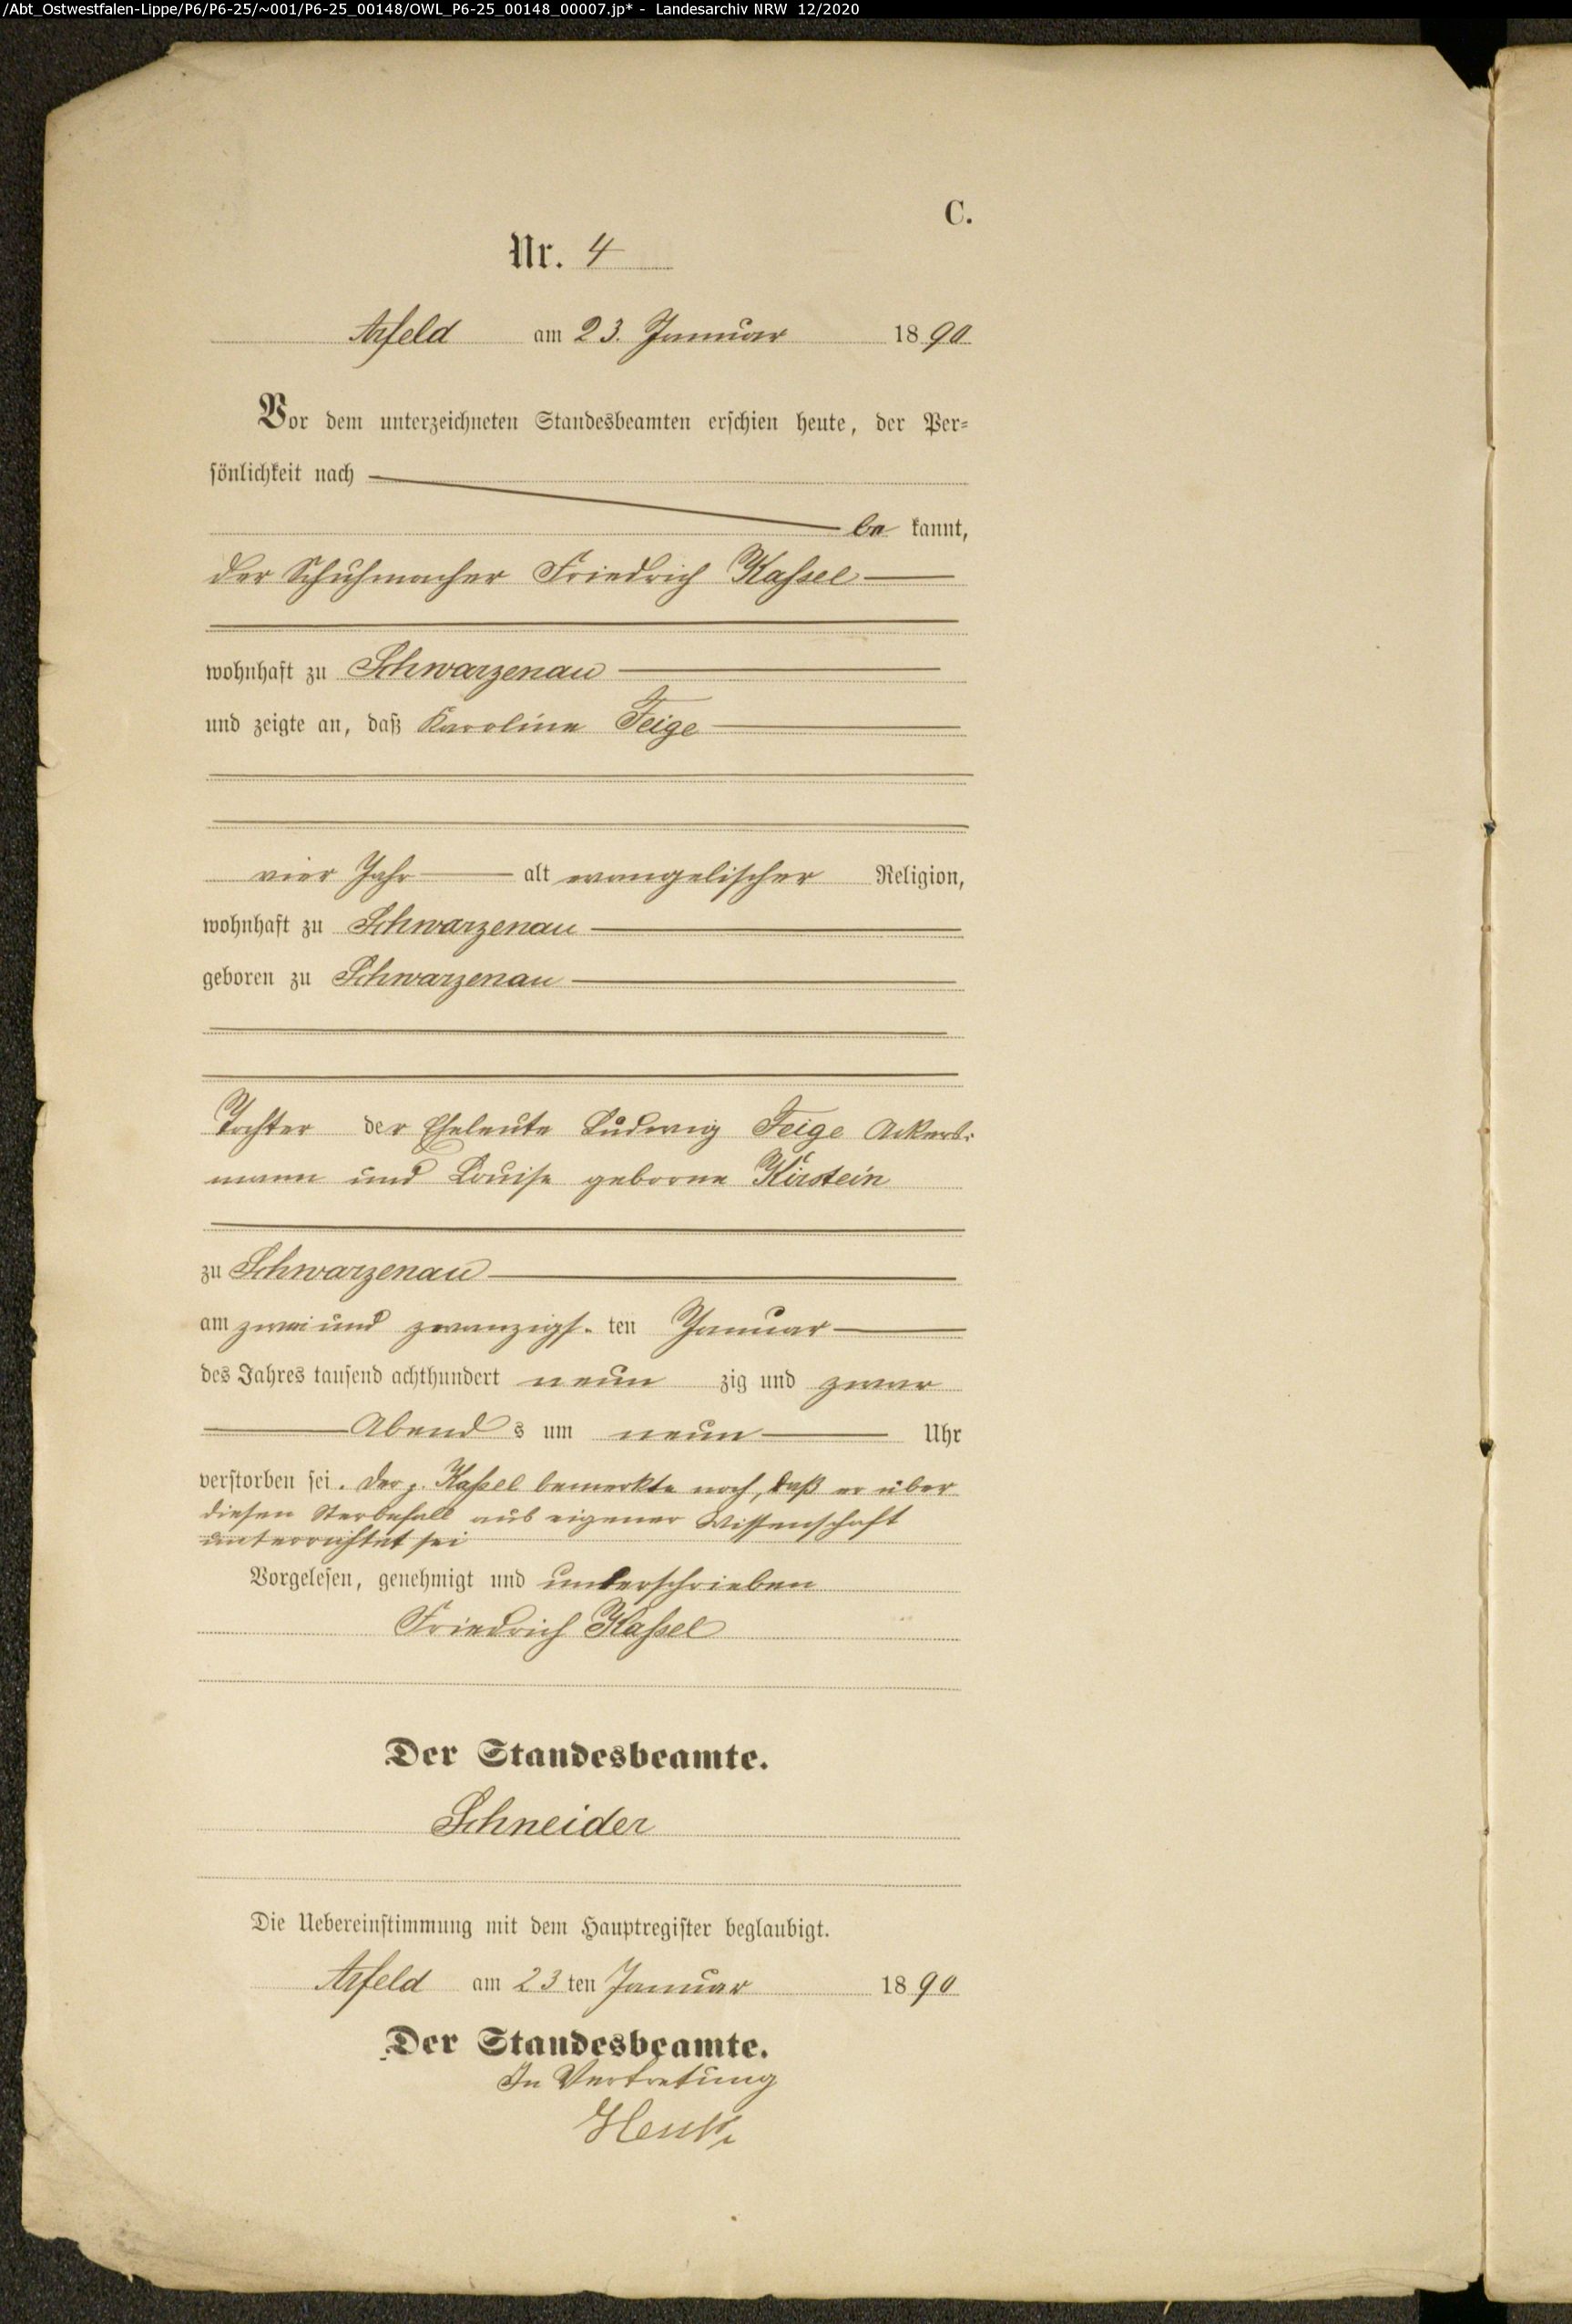 /Abt_Ostwestfalen-Lippe/P6/P6-25/~001/P6-25_00148/OWL_P6-25_00148_00007.jp* - Landesarchiv NRW 12/2020
C.
Nr. 4
Arfeld am 23. Januar 1890
Vor dem unterzeichneten Standesbeamten erschien heute, der Per-
sönlichkeit nach
be kannt,
der Schuhmacher Friedrich Kaßel
wohnhaft zu Schwarzenau
und zeigte an, daß Karoline Feige
vier Jahr alt evangelischer Religion,
wohnhaft zu Schwarzenau
geboren zu Schwarzenau
Tochter der Eheleute Ludwig Feige Ackers-
mann und Louise geborne Kirstein
zu Schwarzenau
am zweiund zwanzigs. ten Januar
des Jahres tausend achthundert neun zig und zwar
Abend s um neun Uhr
verstorben sei. Der p. Kaßel bemerkte noch, daß er über
diesen Sterbefall aus eigener Wissenschaft
unterrichtet sei
Vorgelesen, genehmigt und unterschrieben
Friedrich Kaßel
Der Standesbeamte.
Schneider
Die Uebereinstimmung mit dem Hauptregister beglaubigt.
Arfeld am 23 ten Januar 1890
Der Standesbeamte.
In Vertretung